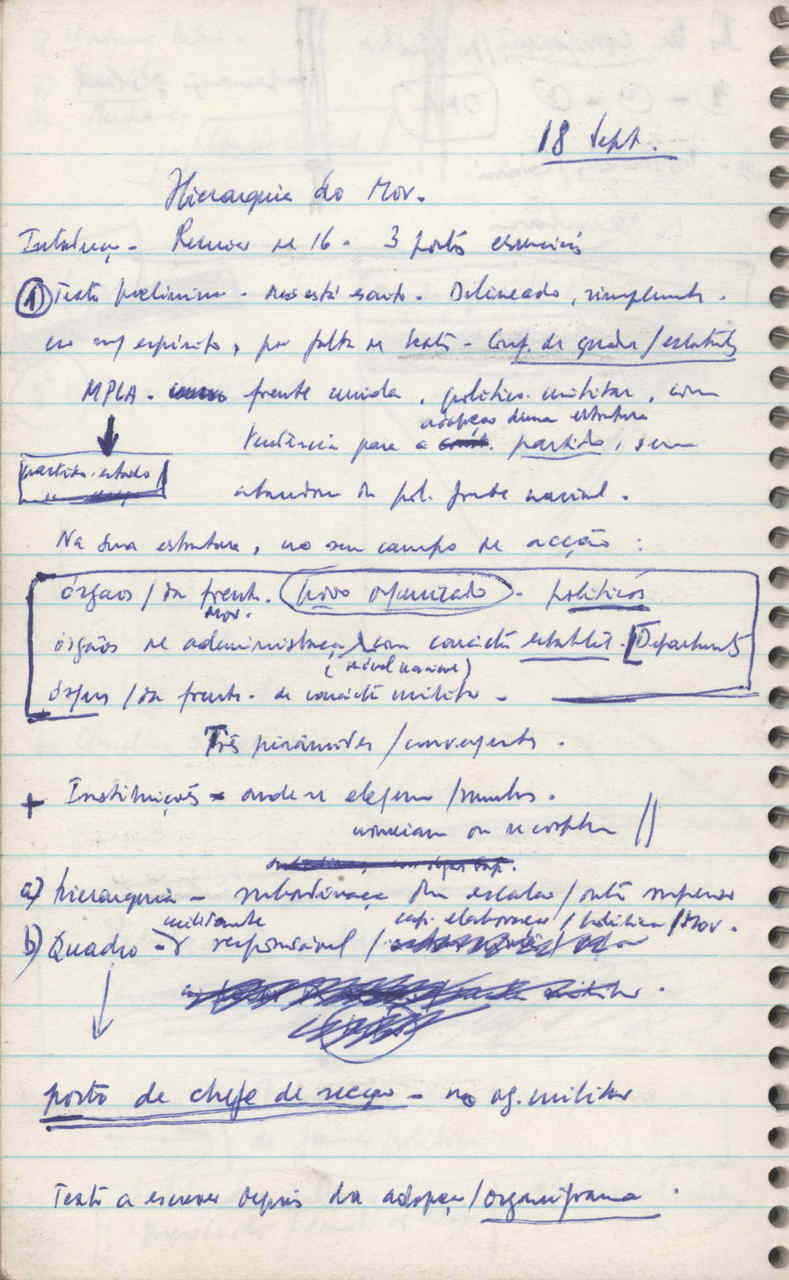 18 Sept.
Hierarquia do Mov.
Introduç. - Reunião de 16 - 3 pontos essenciais
① Texto preliminar - não está escrito. Delineado, simplesmente.
no meu espírito, por falta de texto - Conf. de quadros/estatutos
MPLA - frente unida, político-militar, com
adopção duma estrutura
tendência para a partido, sem
partido-estado
abandonar da pol. frente nacional.
Na sua estrutura, no seu campo de acção:
órgãos / da frente. povo organizado - políticos
Mov.
órgãos de administração com carácter estatal. [Departamentos
(a nível nacional)
órgãos / da frente - de carácter militar -
Três pirâmides / convergentes.
+ Instituições - onde se elegem /
nomeiam ou //
a) hierarquia - subordinação dum escalão / outro superior
militante cap. elaboração / política / Mov.
b) Quadro - responsável /
posto de chefe de secção - no og. militar
Texto a escrever depois da adopção / organigrama.